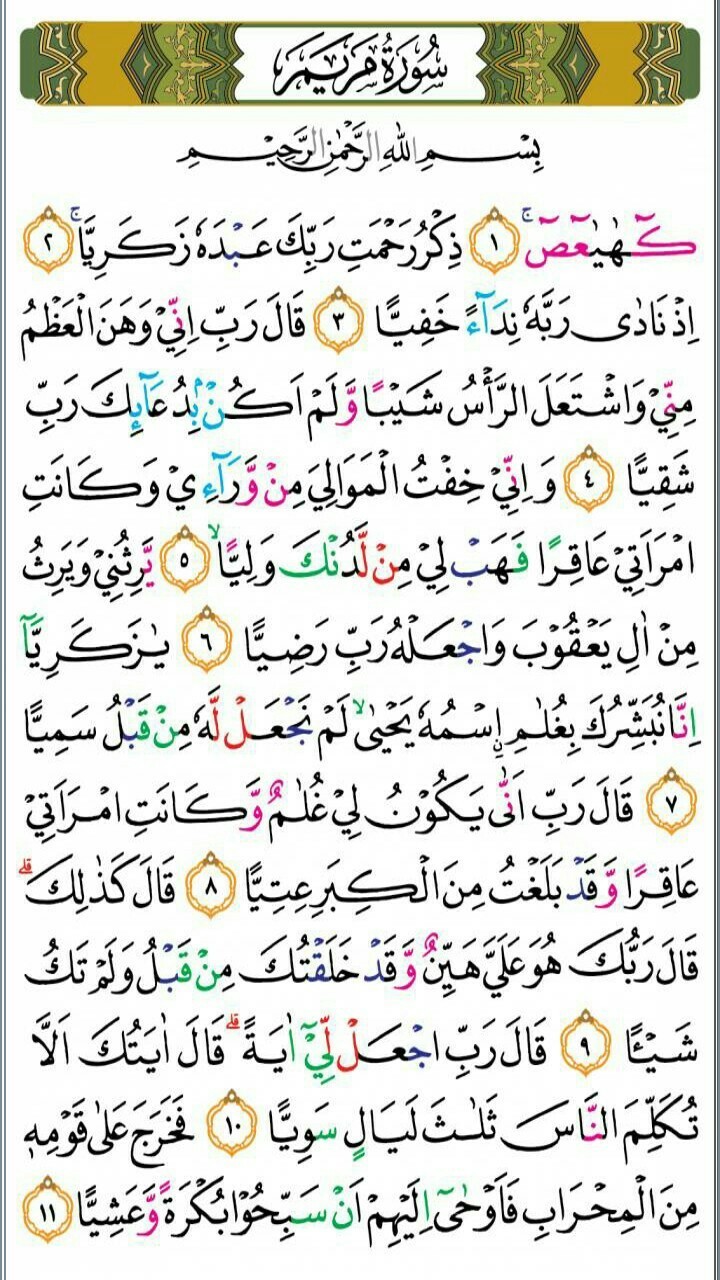 سُوْرَةُ مَرْيَمَ
بِسْمِ اللّٰهِ الرَّحْمٰنِ الرَّحِيْمِ
كٓهٰيٰعٓصٓ ۚ ۝١ ذِكْرُ رَحْمَتِ رَبِّكَ عَبْدَهٗ زَكَرِيَّا ۚ ۝٢
اِذْ نَادٰى رَبَّهٗ نِدَآءً خَفِيًّا ۝٣ قَالَ رَبِّ اِنِّيْ وَهَنَ الْعَظْمُ
مِنِّيْ وَاشْتَعَلَ الرَّأْسُ شَيْبًا وَّلَمْ اَكُنْۢ بِدُعَآئِكَ رَبِّ
شَقِيًّا ۝٤ وَاِنِّيْ خِفْتُ الْمَوَالِيَ مِنْ وَّرَآءِيْ وَكَانَتِ
امْرَاَتِيْ عَاقِرًا فَهَبْ لِيْ مِنْ لَّدُنْكَ وَلِيًّا ۙ ۝٥ يَّرِثُنِيْ وَيَرِثُ
مِنْ اٰلِ يَعْقُوْبَ وَاجْعَلْهُ رَبِّ رَضِيًّا ۝٦ يٰزَكَرِيَّآ
اِنَّا نُبَشِّرُكَ بِغُلٰمِ ࣙاسْمُهٗ يَحْيٰى ۙ لَمْ نَجْعَلْ لَّهٗ مِنْ قَبْلُ سَمِيًّا
۝٧ قَالَ رَبِّ اَنّٰى يَكُوْنُ لِيْ غُلٰمٌ وَّكَانَتِ امْرَاَتِيْ
عَاقِرًا وَّقَدْ بَلَغْتُ مِنَ الْكِبَرِ عِتِيًّا ۝٨ قَالَ كَذٰلِكَ ۗ
قَالَ رَبُّكَ هُوَ عَلَيَّ هَيِّنٌ وَّقَدْ خَلَقْتُكَ مِنْ قَبْلُ وَلَمْ تَكُ
شَيْئًا ۝٩ قَالَ رَبِّ اجْعَلْ لِّيْٓ اٰيَةً ۗ قَالَ اٰيَتُكَ اَلَّا
تُكَلِّمَ النَّاسَ ثَلٰثَ لَيَالٍ سَوِيًّا ۝١٠ فَخَرَجَ عَلٰى قَوْمِهٖ
مِنَ الْمِحْرَابِ فَاَوْحٰٓى اِلَيْهِمْ اَنْ سَبِّحُوْا بُكْرَةً وَّعَشِيًّا ۝١١